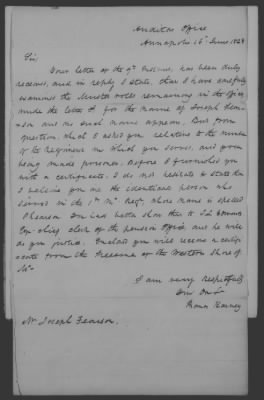 Auditor Office
Annapolis 16th June 1828
Sir,
Your letter of the 9th Instant, has been duly
received, and in reply, I state, that I have carefully
examined the Muster rolls remaining in the Office,
under the letter F. for the name of Joseph
and no such name appears. But from
question, which I asked you relative to the number
of the Regiment in which you served, and your
being made prisoner, before I furnished you
with a certificate. I do not hesitate to state that
I believe you are the identical person who
served in the Md Regt, whose name is spelled
You had better show this to
clerk of the pension Office, and he will
do you justice. Enclosed you will receive a certifi
cate from the Treasurer of the Western Shore of
Md
I am very respectfully
Your Obt
Karney
Mr Joseph Fearson.